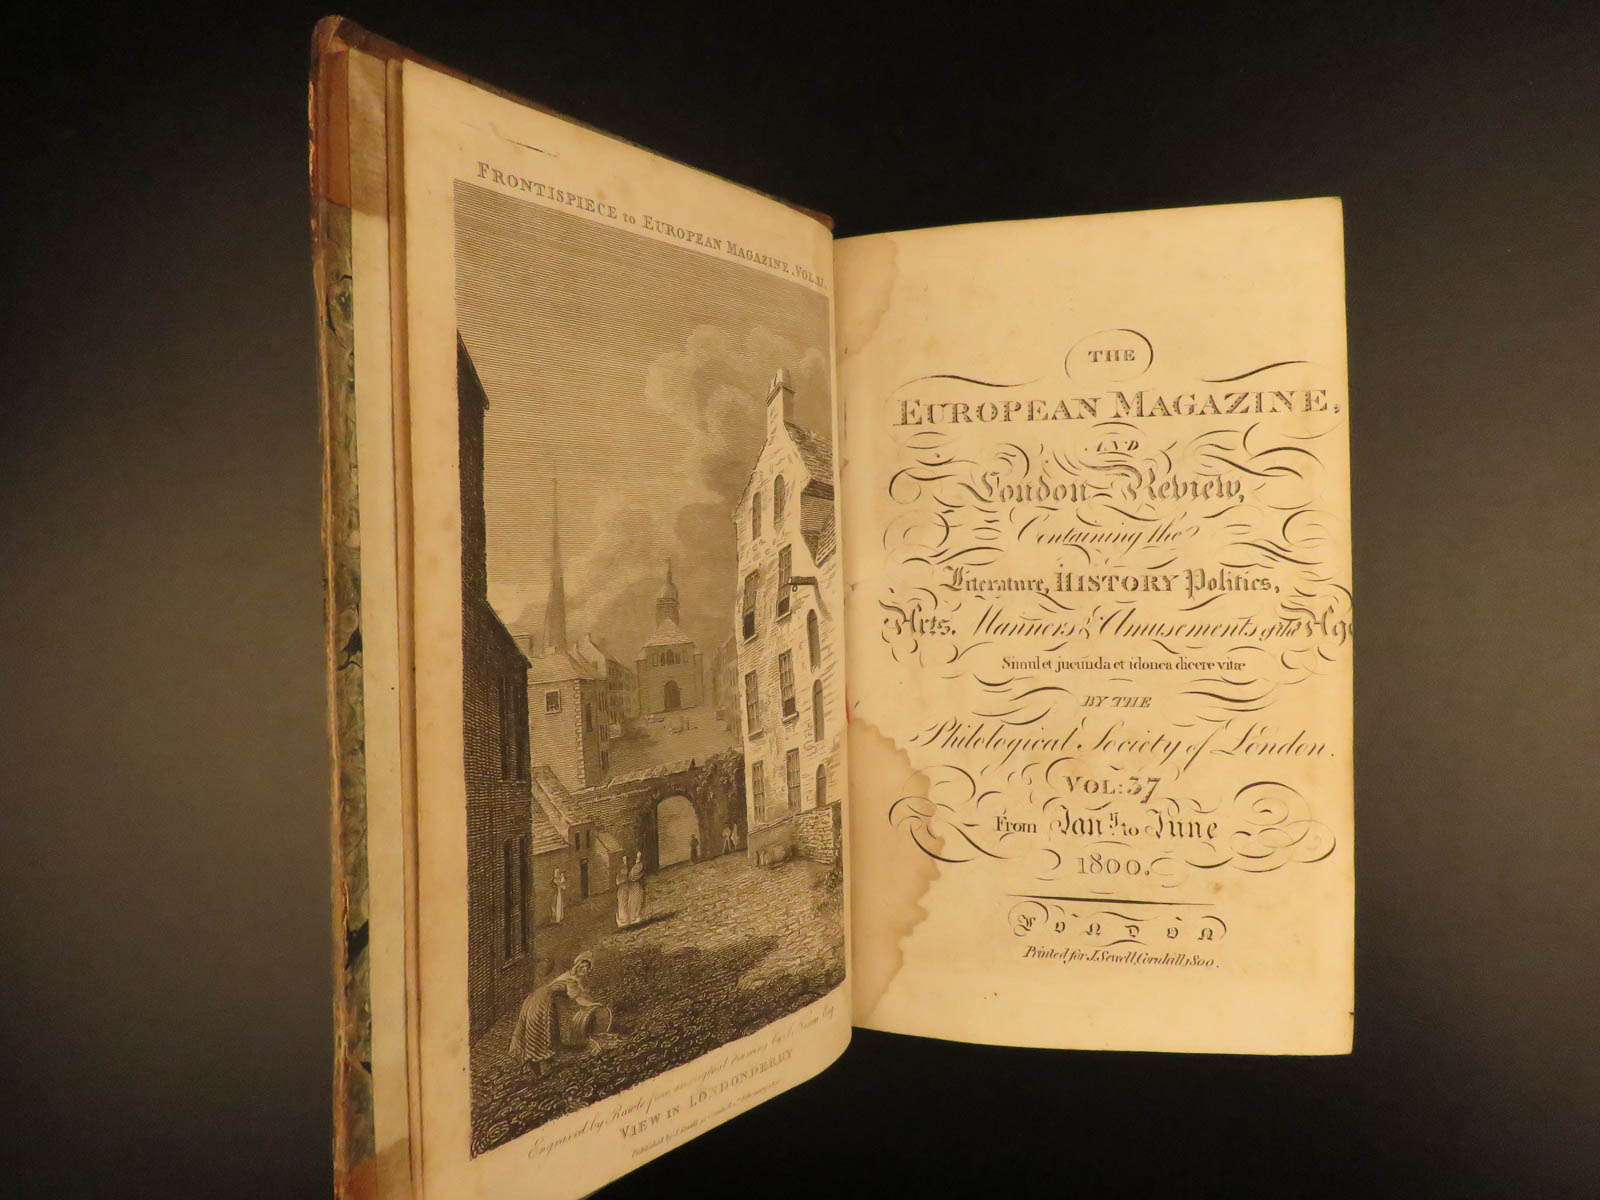 FRONTISPIECE to EUROPEAN MAGAZINE, VOL. 37.
Engraved by Rawle from an original drawing by J. Nixon Esq.
VIEW IN LONDONDERRY
Published by J. Sewell
THE
EUROPEAN MAGAZINE,
AND
London Review,
Containing the
Literature, HISTORY Politics,
Arts, Manners & Amusements of the Age
Simul et jucunda et idonea dicere vitæ
BY THE
Philological Society of London.
VOL: 37
From Jany. to June
1800.
LONDON
Printed for J. Sewell, Cornhill, 1800.